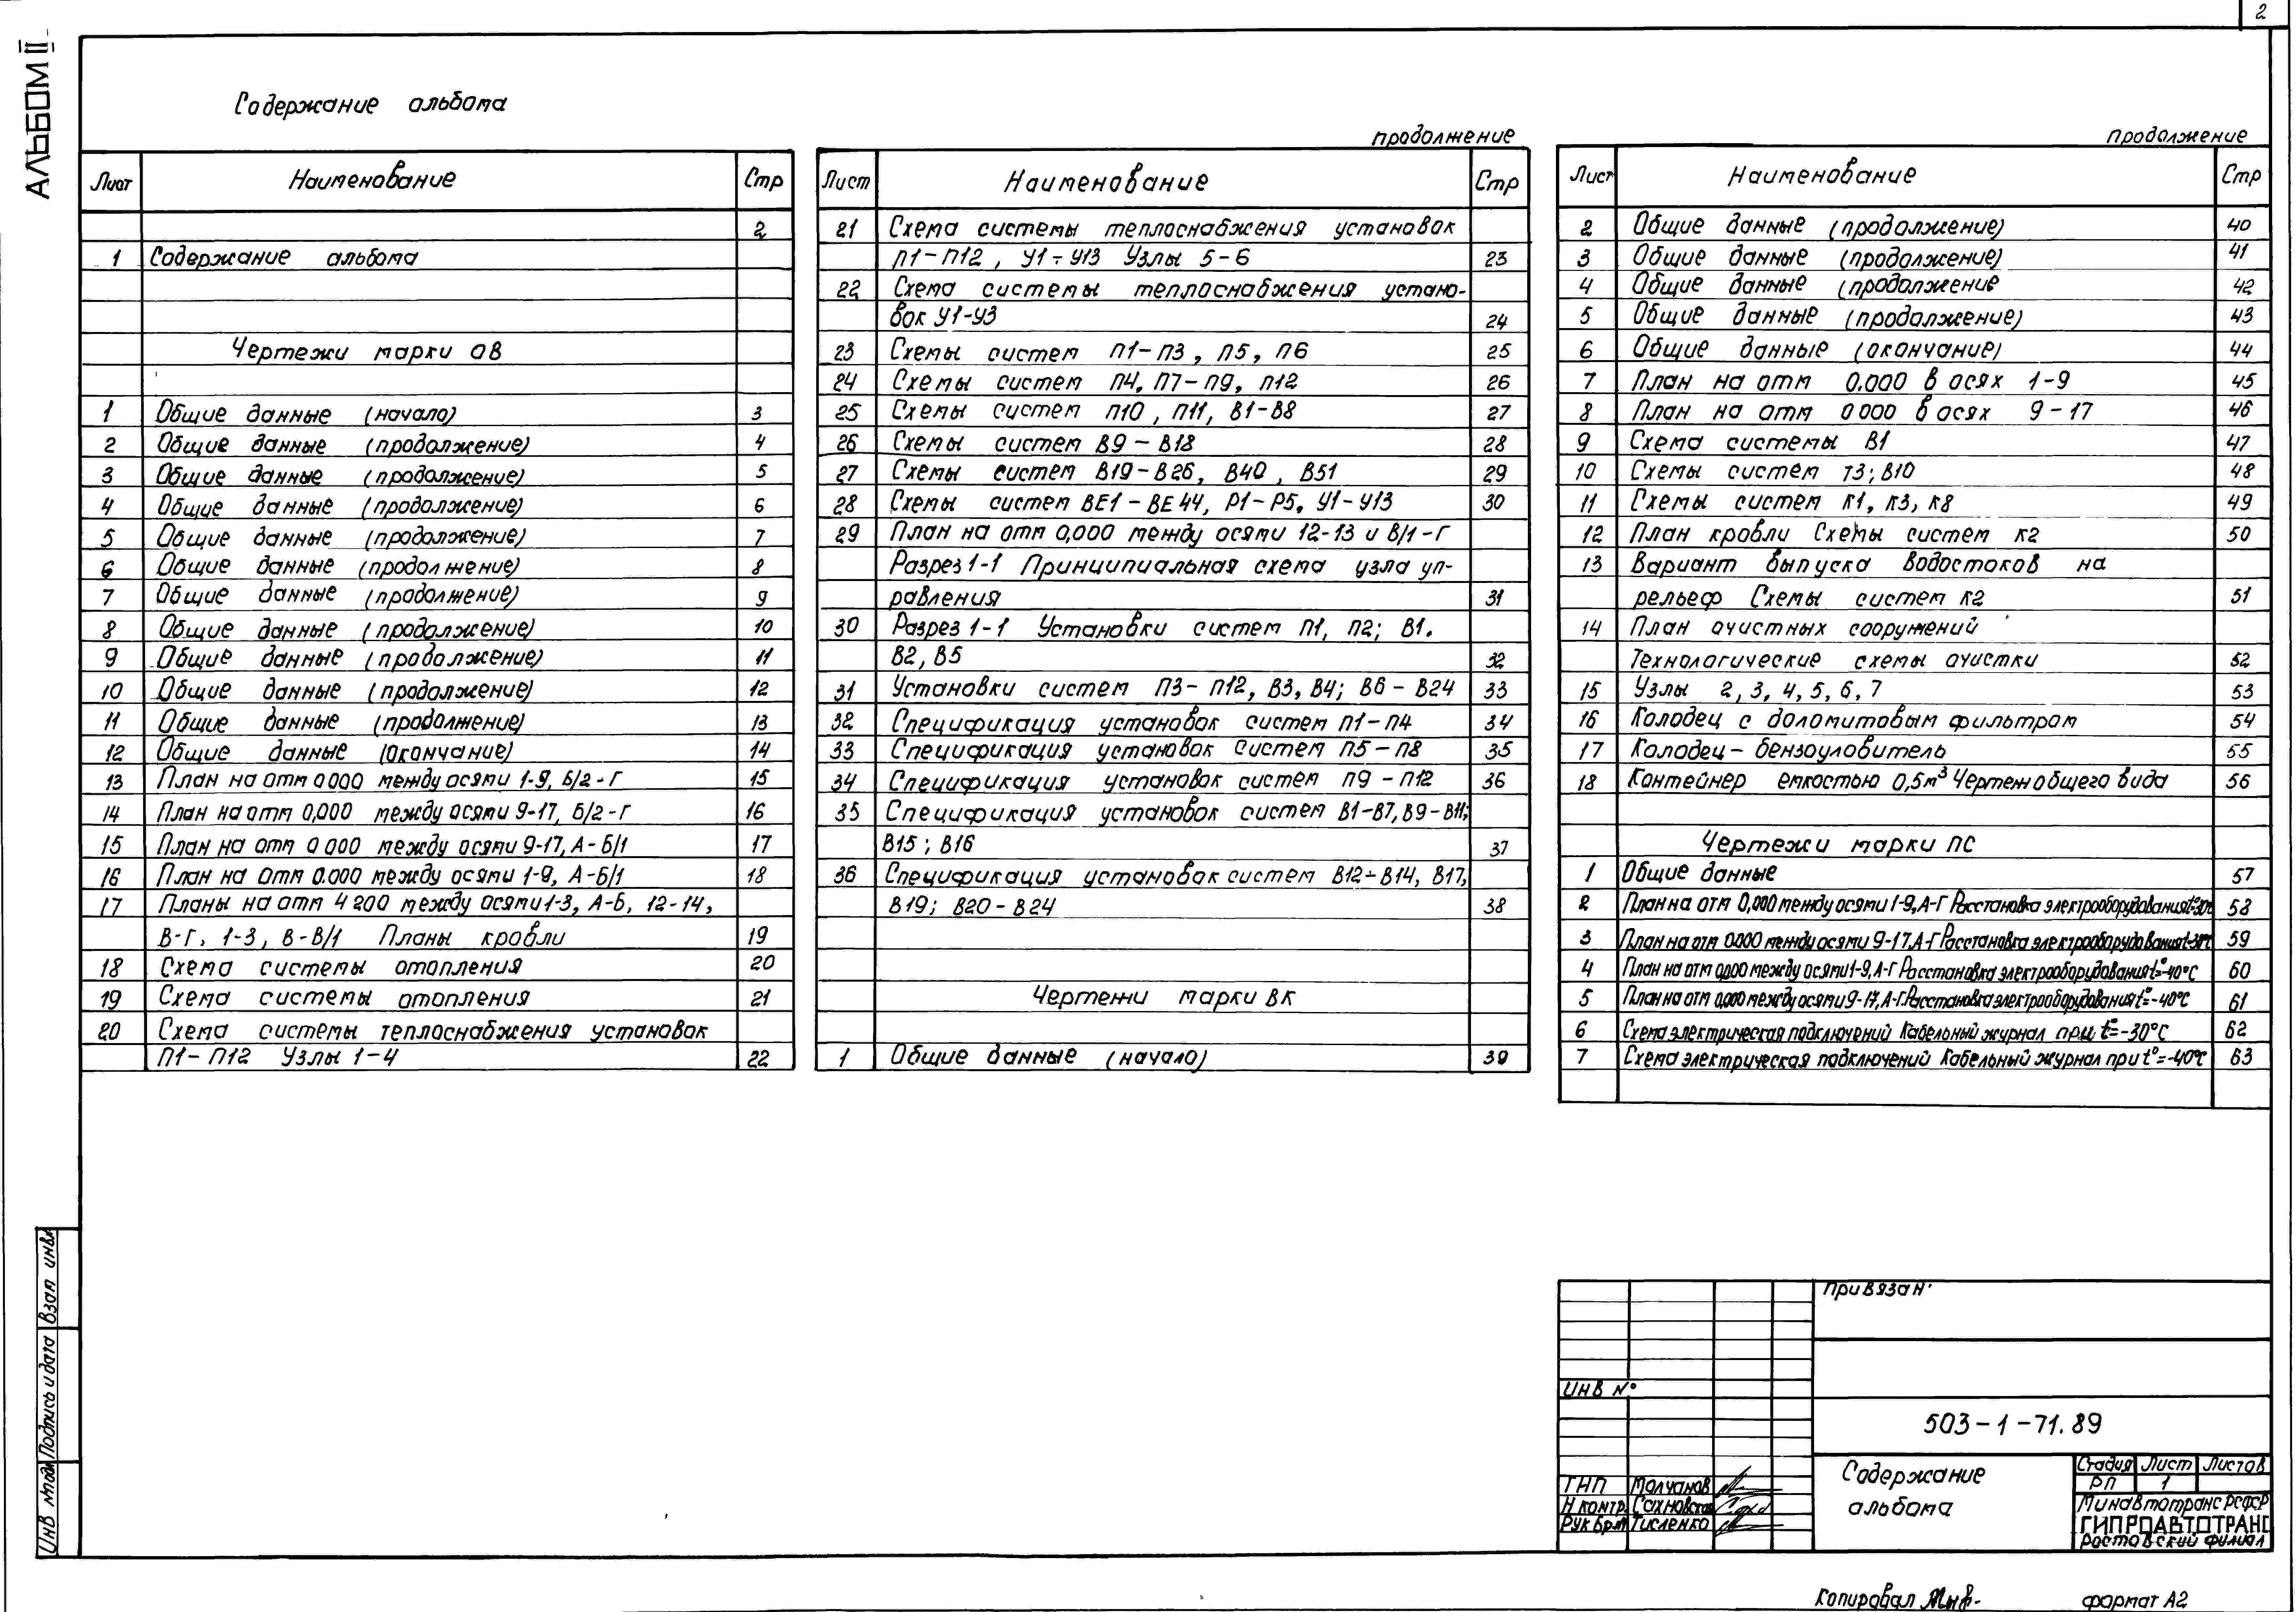 2
АЛЬБОМ II
Содержание альбома
Лист Наименование Стр
2
1 Содержание альбома
Чертежи марки ОВ
1 Общие данные (начало) 3
2 Общие данные (продолжение) 4
3 Общие данные (продолжение) 5
4 Общие данные (продолжение) 6
5 Общие данные (продолжение) 7
6 Общие данные (продолжение) 8
7 Общие данные (продолжение) 9
8 Общие данные (продолжение) 10
9 Общие данные (продолжение) 11
10 Общие данные (продолжение) 12
11 Общие данные (продолжение) 13
12 Общие данные (окончание) 14
13 План на отм 0 000 между осями 1-9, Б/2-Г 15
14 План на отм 0,000 между осями 9-17, Б/2-Г 16
15 План на отм 0 000 между осями 9-17, А-Б/1 17
16 План на отм 0.000 между осями 1-9, А-Б/1 18
17 Планы на отм 4 200 между осями 1-3, А-Б, 12-14,
В-Г, 1-3, В-В/1 Планы кровли 19
18 Схема системы отопления 20
19 Схема системы отопления 21
20 Схема системы теплоснабжения установок
П1-П12 Узлы 1-4 22
продолжение
Лист Наименование Стр
21 Схема системы теплоснабжения установок
П1-П12, У1÷У13 Узлы 5-6 23
22 Схема системы теплоснабжения устано-
вок У1-У3 24
23 Схемы систем П1-П3, П5, П6 25
24 Схемы систем П4, П7-П9, П12 26
25 Схемы систем П10, П11, В1-В8 27
26 Схемы систем В9-В18 28
27 Схемы систем В19-В26, В40, В51 29
28 Схемы систем ВЕ1-ВЕ44, Р1-Р5, У1-У13 30
29 План на отм 0,000 между осями 12-13 и В/1-Г
Разрез 1-1 Принципиальная схема узла уп-
равления 31
30 Разрез 1-1 Установки систем П1, П2; В1.
В2, В5 32
31 Установки систем П3-П12, В3, В4; В6-В24 33
32 Спецификация установок систем П1-П4 34
33 Спецификация установок систем П5-П8 35
34 Спецификация установок систем П9-П12 36
35 Спецификация установок систем В1-В7, В9-В11;
В15; В16 37
36 Спецификация установок систем В12÷В14, В17,
В19; В20-В24 38
Чертежи марки ВК
1 Общие данные (начало) 39
продолжение
Лист Наименование Стр
2 Общие данные (продолжение) 40
3 Общие данные (продолжение) 41
4 Общие данные (продолжение 42
5 Общие данные (продолжение) 43
6 Общие данные (окончание) 44
7 План на отм 0.000 в осях 1-9 45
8 План на отм 0 000 в осях 9-17 46
9 Схема системы В1 47
10 Схемы систем Т3; В10 48
11 Схемы систем К1, К3, К8 49
12 План кровли Схемы систем К2 50
13 Вариант выпуска водостоков на
рельеф Схемы систем К2 51
14 План очистных сооружений
Технологические схемы очистки 52
15 Узлы 2, 3, 4, 5, 6, 7 53
16 Колодец с доломитовым фильтром 54
17 Колодец-бензоуловитель 55
18 Контейнер емкостью 0,5м³ Чертеж общего вида 56
Чертежи марки ПС
1 Общие данные 57
2 План на отм 0,000 между осями 1-9, А-Г Расстановка электрооборудования t=-30°С 58
3 План на отм 0.000 между осями 9-17, А-Г Расстановка электрооборудования t=-30°С 59
4 План на отм 0,000 между осями 1-9, А-Г Расстановка электрооборудования t°=-40°С 60
5 План на отм 0,000 между осями 9-17, А-Г. Расстановка электрооборудования t°=-40°С 61
6 Схема электрическая подключений Кабельный журнал при t°=-30°С 62
7 Схема электрическая подключений Кабельный журнал при t°=-40°С 63
Взам инв
Подпись и дата
Инв №подл
Привязан
Инв №
503-1-71.89
Содержание
альбома
Стадия Лист Листов
РП 1
Минавтотранс РСФСР
ГИПРОАВТОТРАНС
Ростовский филиал
ГИП Молчанов
Н контр. Сахновская
Рук бр.М Тисленко
Копировал
формат А2